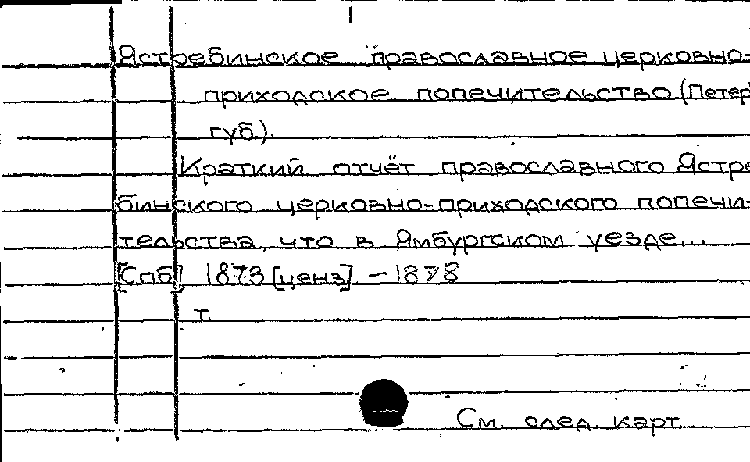 Ястребинское православное церковно-
приходское попечительство (Петерб
губ.).
Краткий отчёт православного Ястре
бинского церковно-приходского попечи-
тельства, что в Ямбургском уезде...
[Спб] 1873 [ценз] - 1878
т.
См. след. карт